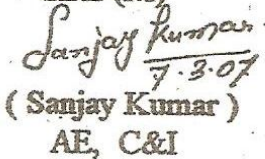 Sanjay Kumar
7.3.07
( Sanjay Kumar )
AE, C&I